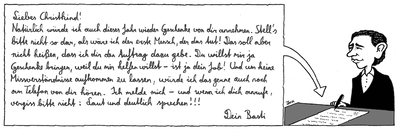 Liebes Christkind!
Natürlich würde ich auch dieses Jahr wieder Geschenke von dir annehmen. Stell's
bitte nicht so dar, als wäre ich der erste Mensch, der das tut! Das soll aber
nicht heißen, dass ich dir den Auftrag dazu gebe. Du willst mir ja
Geschenke bringen, weil du mir helfen willst - ist ja dein Job! Und um keine
Missverständnisse aufkommen zu lassen, würde ich das gerne auch noch
am Telefon von dir hören. Ich melde mich - und wenn ich dich anrufe,
vergiss bitte nicht: Laut und deutlich sprechen!!!
Dein Basti